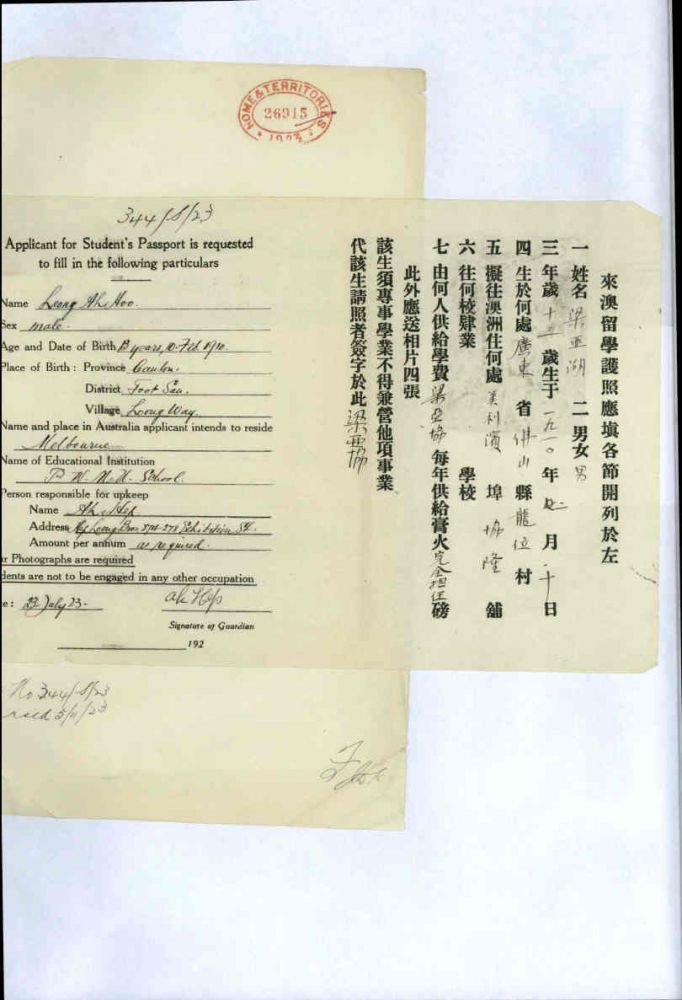 HOME & TERRITORIES
26915
1923
344/S/23
Applicant for Student's Passport is requested
to fill in the following particulars
Name Leong Ah Hoo.
Sex male.
Age and Date of Birth 13 years, 10 Feb 1910.
Place of Birth: Province Canton.
District Foot San.
Village Leong Way.
Name and place in Australia applicant intends to reside
Melbourne
Name of Educational Institution
P. W. M. U. School.
Person responsible for upkeep
Name Ah Hep
Address Hep Leong Bros 274-278 Exhibition St.
Amount per annum as required.
ur Photographs are required
dents are not to be engaged in any other occupation
e: 23 July 23.
Ah Hep
Signature of Guardian
192
No 344/S/23
5/11/23
來澳留學護照應填各節開列於左
一 姓名 梁亞湖 二 男女 男
三 年歲 十三 歲生于 一九一〇 年 月 十 日
四 生於何處 廣東 省 佛山 縣 龍位 村
五 擬往澳洲住何處 美利濱 埠 協隆 舖
六 往何校肄業 學校
七 由何人供給學費 梁亞協 每年供給膏火 完全担任 磅
此外應送相片四張
該生須專事學業不得兼營他項事業
代該生請照者簽字於此 梁亞協